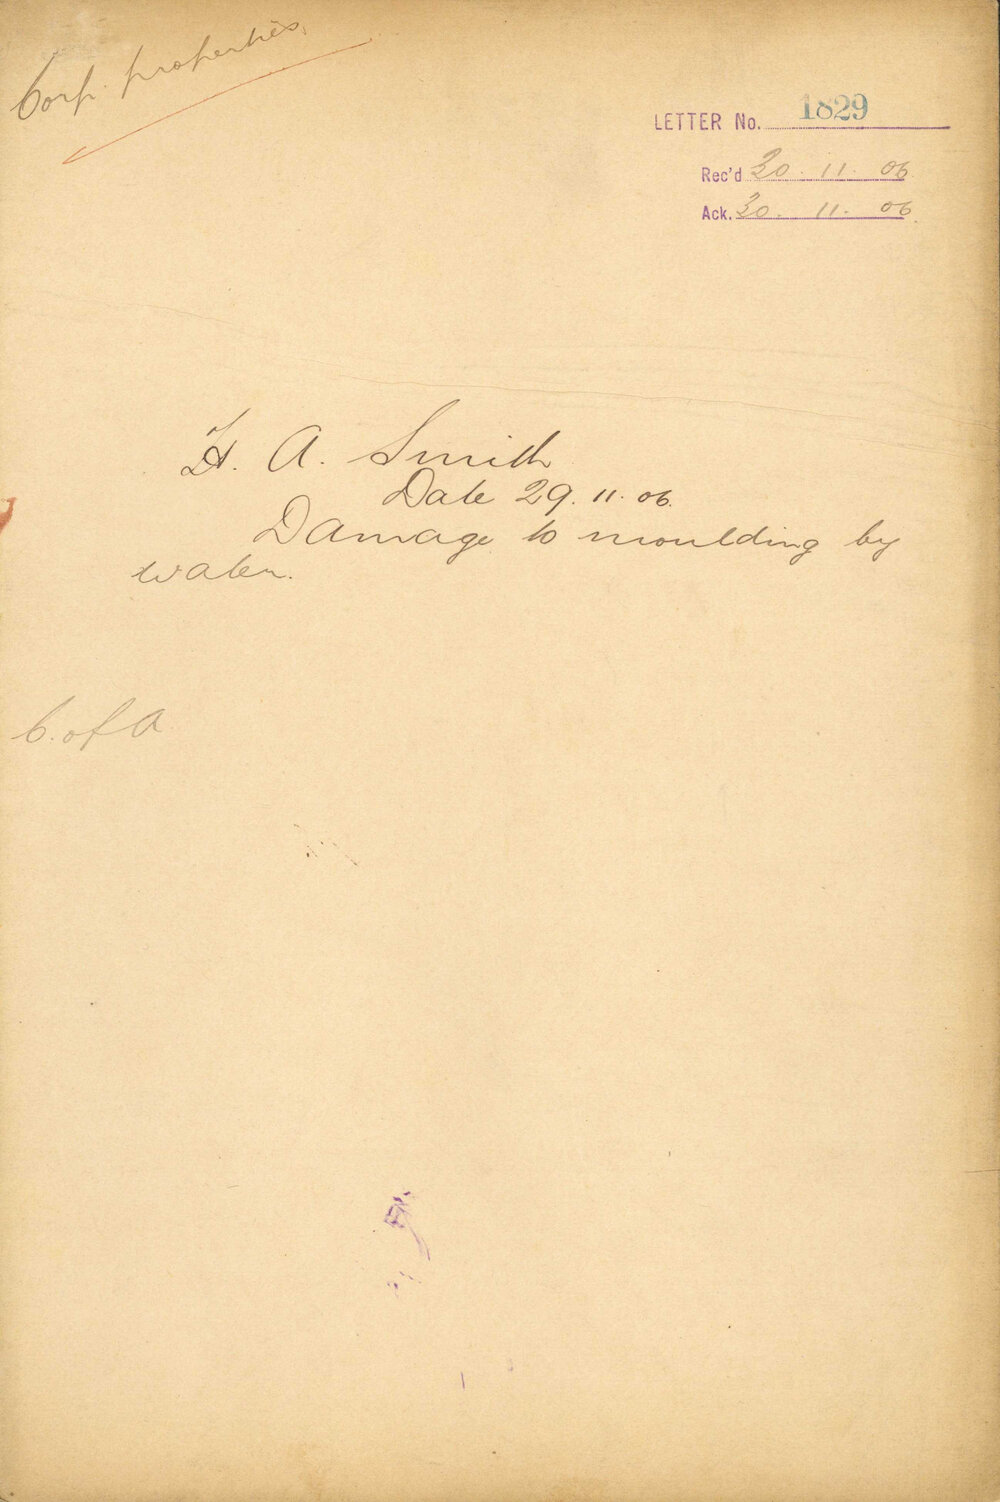 Corp. properties.
LETTER No. 1829
Rec'd 30. 11. 06
Ack. 30. 11. 06.
A. Smith
Date 29. 11. 06.
Damage to moulding by
water.
C. of A.